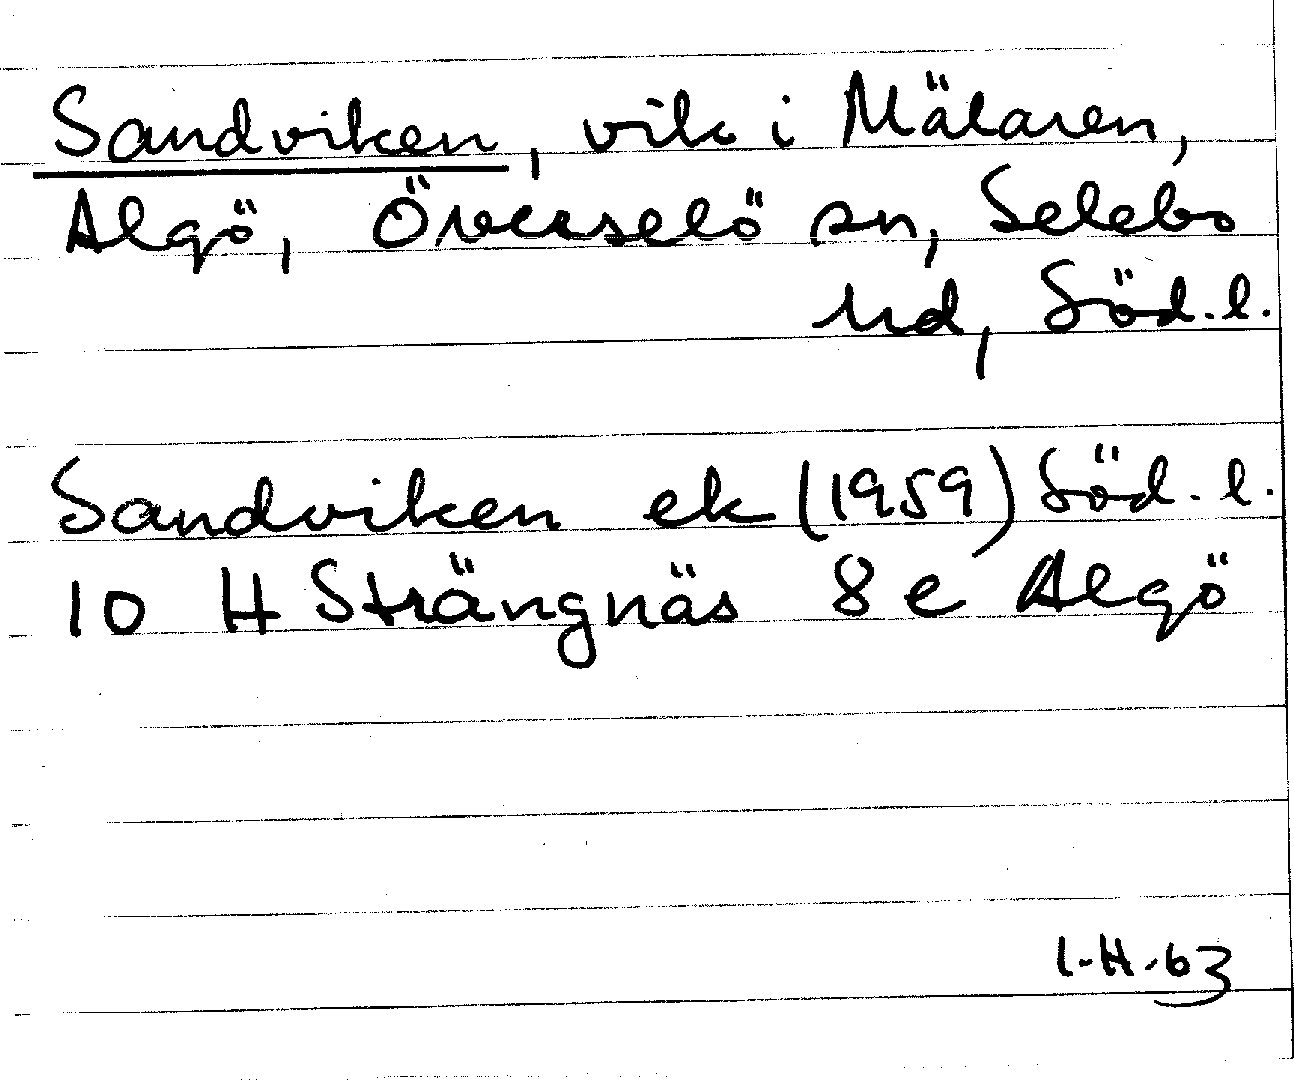 Sandviken, vik i Mälaren,
Algö, Överselö sn, Selebo
hd, Söd. l.
Sandviken ek (1959) Söd. l.
10 H Strängnäs 8 e Algö
I.H.63